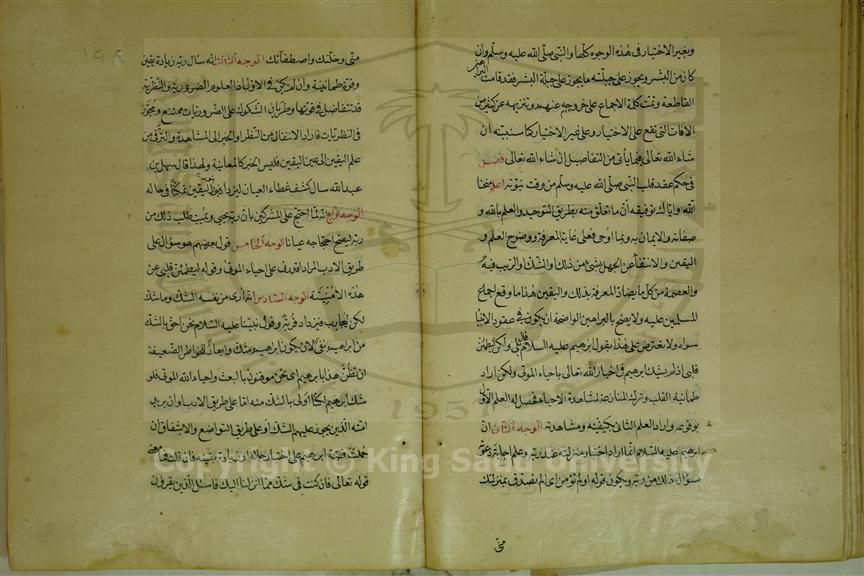 وبغير الاختيار في هذه الوجوه كلها والنبي صلى الله عليه وسلم وان
كان من البشر ويجوز على جبلته ما يجوز على جبلة البشر فقد قامت البراهين
القاطعة وتمت كلمة الاجماع على خروجه عنهم وتنزيهه عن كثير من
الافات التي تقع على الاختيار وعلى غير الاختيار كما سنبينه ان
شاء الله تعالى فيما يأتي من التفاصيل ان شاء الله تعالى فصل
في حكم عقد قلب النبي صلى الله عليه وسلم من وقت نبوته اعلم منحنا
الله واياك توفيقه ان ما تعلق منه بطريق التوحيد والعلم بالله و
صفاته والايمان به وبما اوحي فعلى غاية المعرفة ووضوح العلم و
اليقين والانتفاء عن الجهل بشئ من ذلك والشك والريب فيه
والعصمة من كل ما يضاد المعرفة بذلك واليقين هذا ما وقع اجماع
المسلمين عليه ولا يصح بالبراهين الواضحة ان يكون في عقود الانبيا
سواه ولا يعترض على هذا بقول ابرهيم عليه السلام قال بلى ولكن ليطمئن
قلبي اذ لم يشك ابرهيم في اخبار الله تعالى باحياء الموتى ولكن اراد
طمانينة القلب وترك المنازعة لمشاهدة الاحياء فحصل له العلم الاول
بوقوعه واراد العلم الثاني بكيفيته ومشاهدته الوجه الثاني ان
ابرهيم عليه السلام انما اراد اختبار منزلته عند ربه وعلم اجابته دعوته
بسؤال ذلك من ربه ويكون قوله اولم تؤمن اي الم تصدق بمنزلتك
منى
منى وخلتك واصطفائك الوجه الثالث انه سال ربه زيادة يقين
وقوة طمانينة وان لم يكن في الاول اذ العلوم الضرورية والنظرية
قد تتفاضل في قوتها وطريان الشكوك على الضروريات ممتنع ومجوز
في النظريات فاراد الانتقال من النظر او الخبر الى المشاهدة والترقي من
علم اليقين الى عين اليقين فليس الخبر كالمعاينة ولهذا قال سهل بن
عبد الله سال كشف غطاء العيان ليزداد بنور اليقين تمكنا في حاله
الوجه الرابع انه لما احتج على المشركين بان ربه يحيي ويميت طلب ذلك من
ربه ليصح احتجاجه عيانا الوجه الخامس قول بعضهم هو سؤال على
طريق الادب المراد اقدرني على احياء الموتى وقوله ليطمئن قلبي عن
هذه الامنية الوجه السادس انه ارى من نفسه الشك وما شك
لكن ليجاوب فيزداد قربه وقول نبينا عليه السلام نحن احق بالشك
من ابراهيم نفي لان يكون ابرهيم شك وابعاد للخواطر الضعيفة
ان تظن هذا بابرهيم اي نحن موقنون بالبعث واحياء الله الموتى فلو
شك ابرهيم لكنا اولى بالشك منه اما على طريق الادب او ان يريد
امته الذين يجوز عليهم الشك او على طريق التواضع والاشفاق ان
حملت قصة ابرهيم على اختبار حاله او زيادة يقينه فان قلت فما معنى
قوله تعالى فان كنت في شك مما انزلنا اليك فاسئل الذين يقرؤن
1957
Copyright © King Saud University